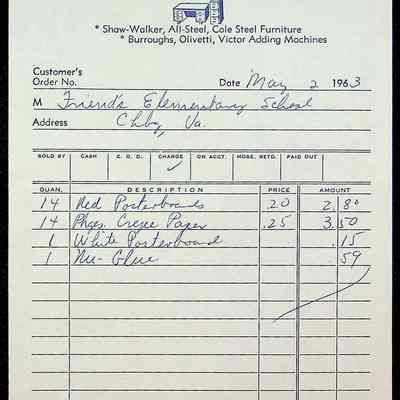 * Shaw-Walker, All-Steel, Cole Steel Furniture
* Burroughs, Olivetti, Victor Adding Machines
Customer's
Order No. Date May 2 1963
M Friends Elementary School
Address Chbg, Va.
SOLD BY CASH C. O. D. CHARGE ON ACCT. MDSE. RETD. PAID OUT
✓
QUAN. DESCRIPTION PRICE AMOUNT
14 Red Posterboards .20 2.80
14 Phges. Crepe Paper .25 3.50
1 White Posterboard .15
1 Nu-Glue .59